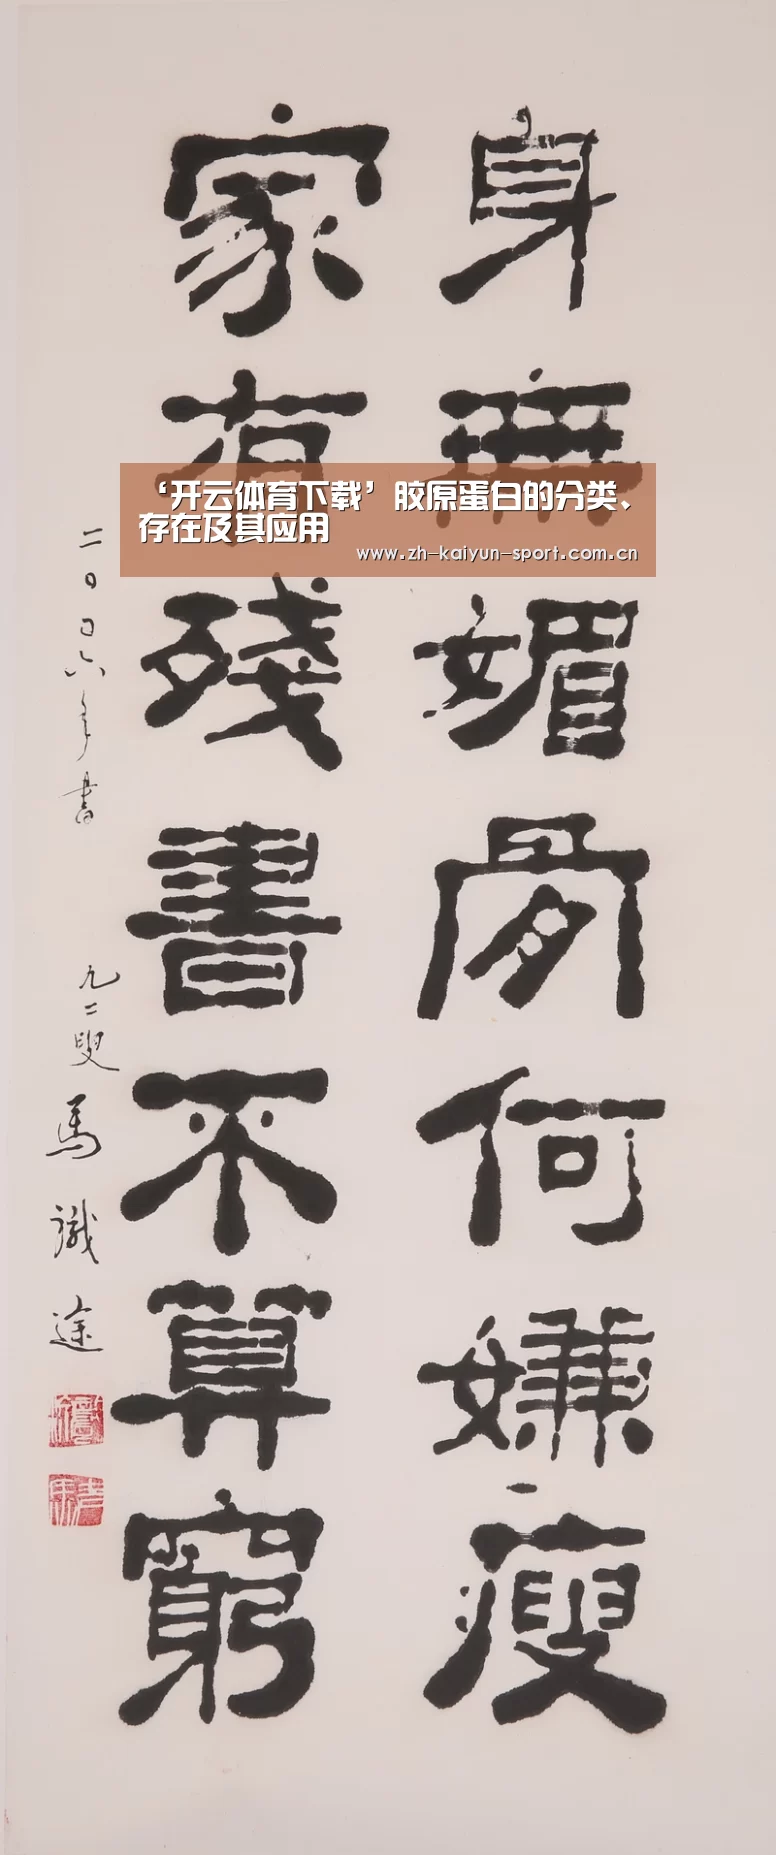 身無媚骨何嫌瘦
家有殘書不算窮
二〇〇六年書 九二叟 馬識途
‘开云体育下载’胶原蛋白的分类、
存在及其应用
www.zh-kaiyun-sport.com.cn